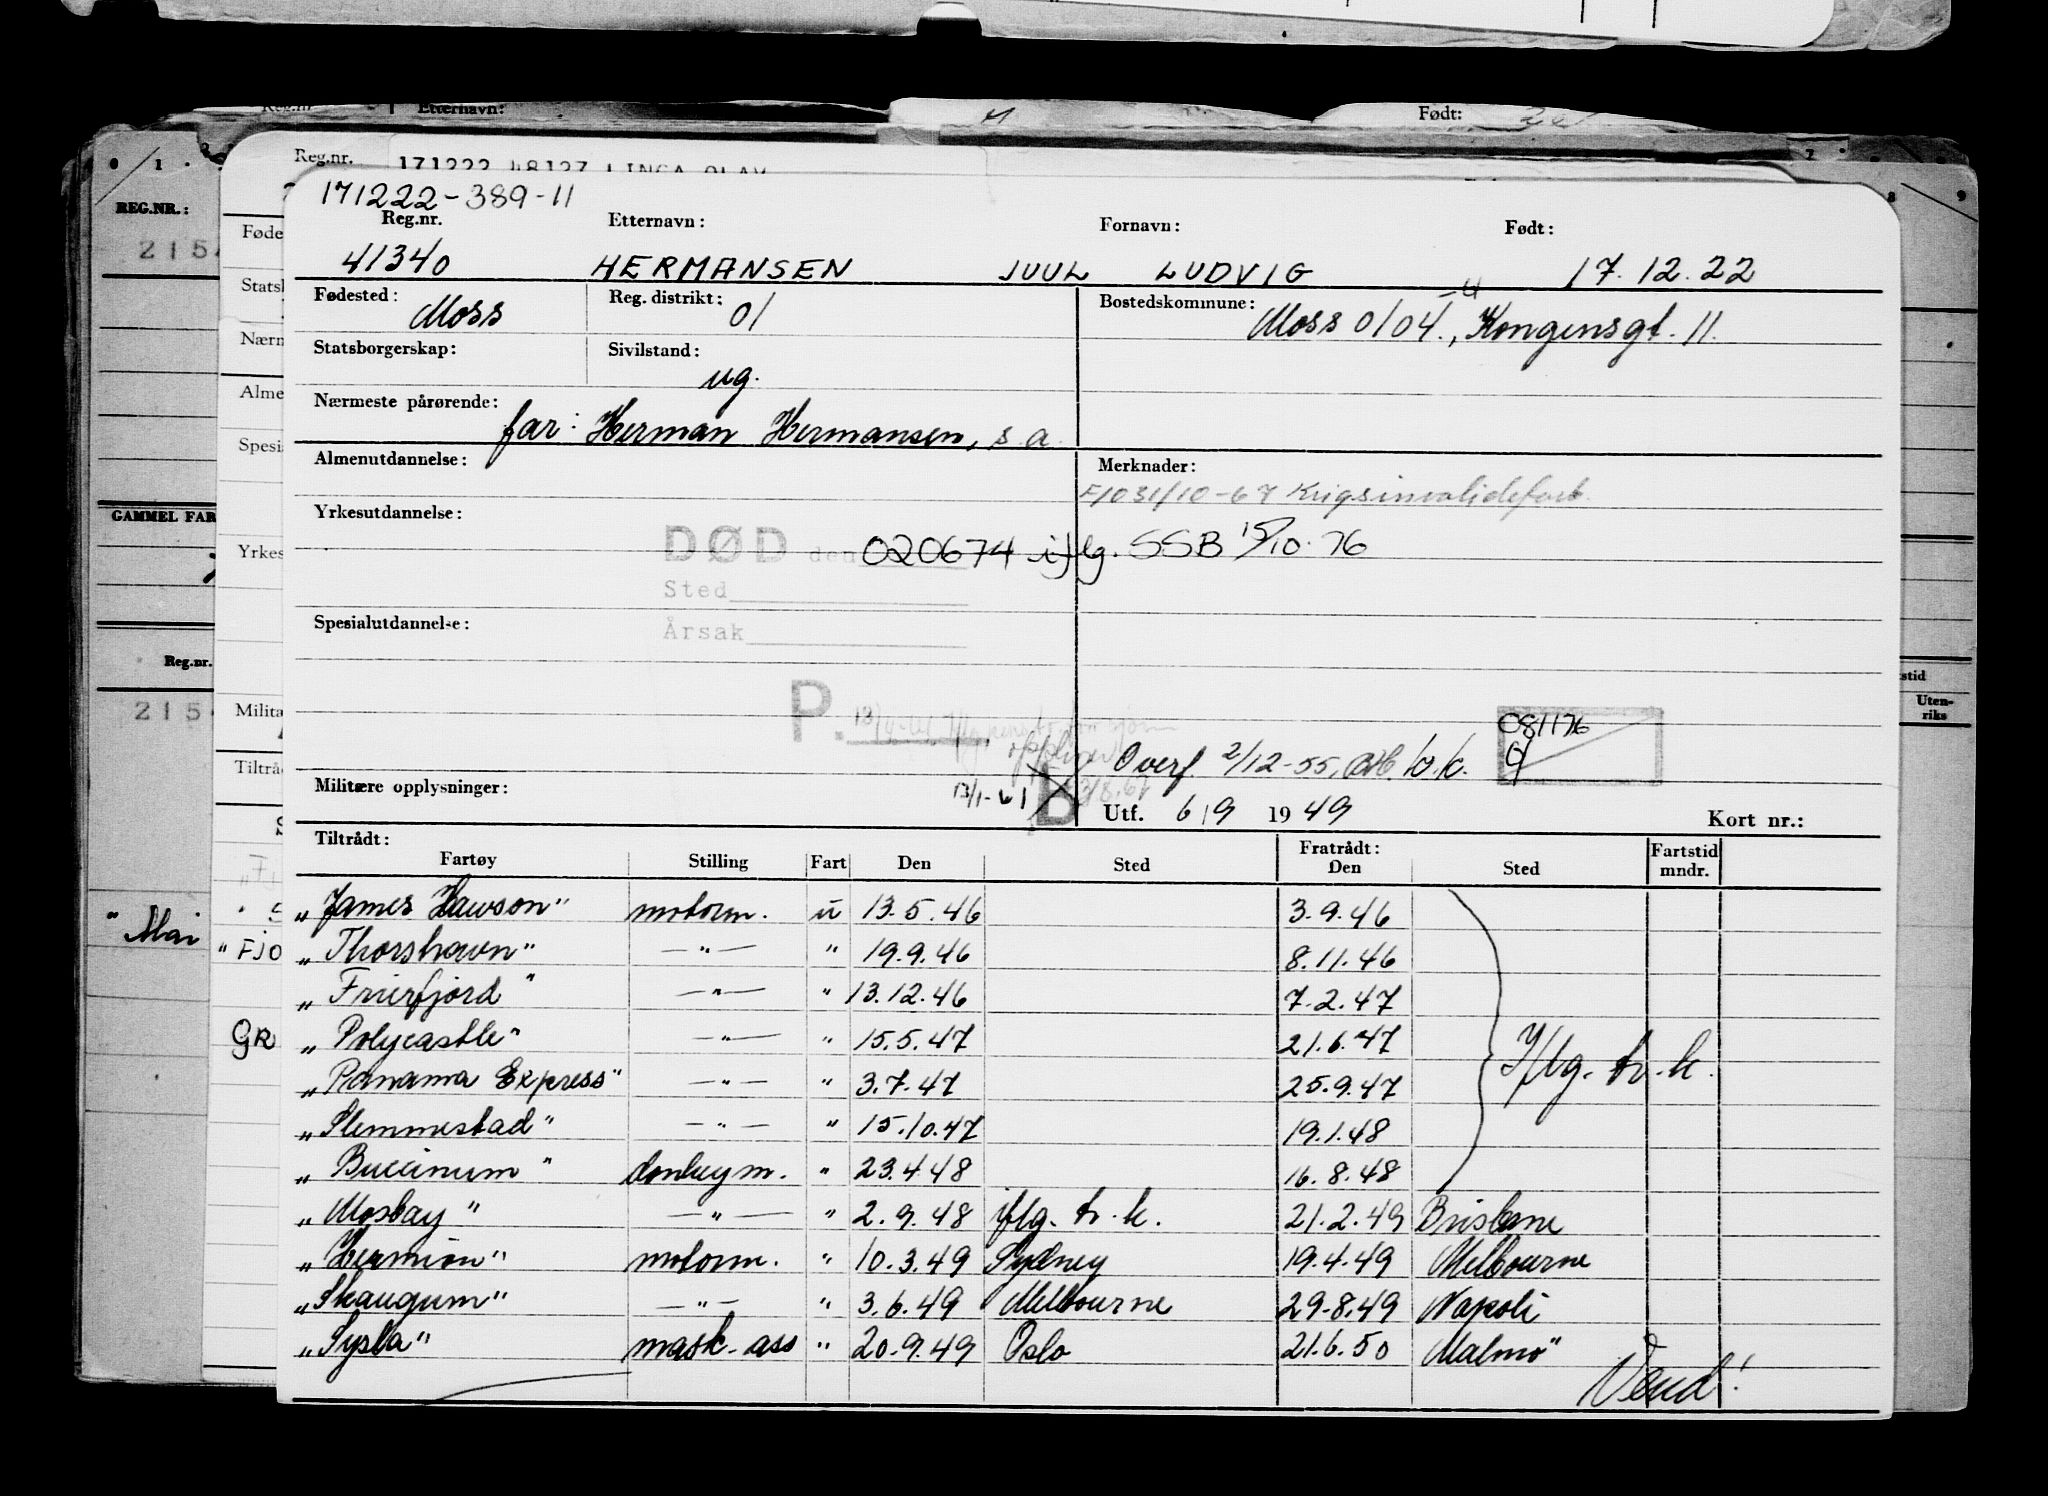 Reg.nr. Etternavn: Født:
REG.NR.:
Reg.nr. 171222 48127 LINGA OLAV
171222-389-11
Reg.nr. Etternavn: Fornavn: Født:
41340 HERMANSEN JUUL LUDVIG 17.12.22
Fødested: Moss Reg. distrikt: 01 Bostedskommune: Moss 0104-4, Kongensgt. 11.
Statsborgerskap: Sivilstand: ug.
Nærmeste pårørende: far: Herman Hermansen, s.a.
Almenutdannelse: Merknader:
F1031/10-67 Krigsinvalideforb.
Yrkesutdannelse:
DØD den 020674 iflg. SSB 15/10.76
Sted
Årsak
Spesialutdannelse:
P.
081176
Overf. 2/12-55, tr.k.
Militære opplysninger: 13/1-61 Utf. 6/9 1949 Kort nr.:
Tiltrådt: Fratrådt:
Fartøy Stilling Fart Den Sted Den Sted Fartstid mndr.
„James Hawson" motorm. u 13.5.46 3.9.46
„Thorshavn" —"— " 19.9.46 8.11.46
„Frierfjord" —"— " 13.12.46 7.2.47
„Polycastle" —"— " 15.5.47 21.6.47 Iflg. tr.k.
„Panama Express" —"— " 3.7.47 25.9.47
„Slemmestad" —"— " 15.10.47 19.1.48
„Buccinum" donkeym. " 23.4.48 16.8.48
„Mosbay" —"— " 2.9.48 iflg. tr.k. 21.2.49 Brisbane
„Hermion" motorm. " 10.3.49 Sydney 19.4.49 Melbourne
„Skaugum" —"— " 3.6.49 Melbourne 29.8.49 Napoli
„Sysla" mask.ass " 20.9.49 Oslo 21.6.50 Malmö
Vend!
GAMMEL FAR
Reg.nr.
"Mai
"FJO
GR
Uten-
riks